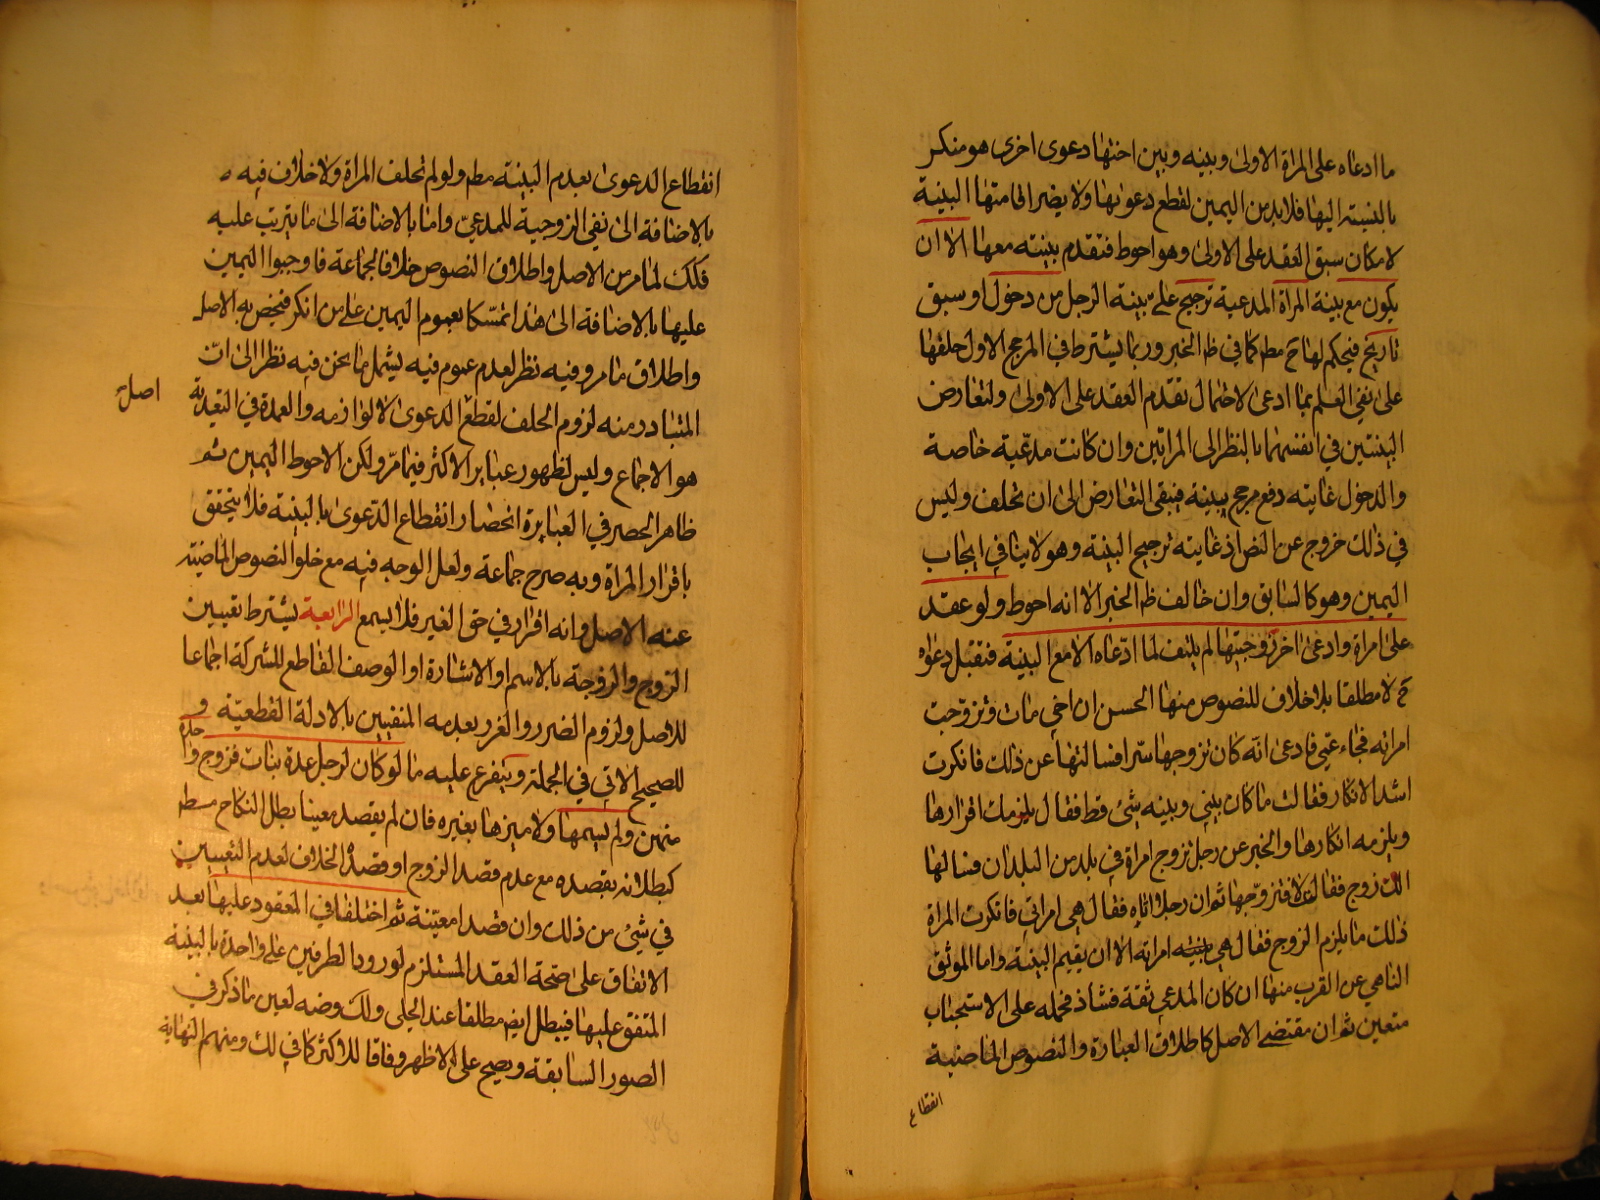 ما ادعاه على المراة الاولى وبينه وبين اختها دعوى اخرى هو منكر
بالنسبة اليها فلا بد من اليمين لقطع دعويها ولا يضر اقامتها البينة
لامكان سبق العقد على الاولى وهو احوط فتقدم بينته معها الا ان
يكون مع بينة المراة المدعية ترجيح على بينة الرجل من دخول او سبق
تاريخ فيحكم لها ح مطم كما في ظم الخبر وربما يشترط في المرجح الاول حلفها
على نفي العلم بما ادعى لاحتمال تقدم العقد على الاولى ولتعارض
البينتين في انفسهما بالنظر الى المراتين وان كانت مدعية خاصة
والدخول غايته دفع مرجح بينة فيبقى التعارض الى ان تحلف وليس
في ذلك خروج عن النص اذ غايته ترجيح البينة وهو لا ينافي ايجاب
اليمين وهو كالسابق وان خالف ظم الخبر الا انه احوط ولو عقد
على امراة وادعى اخر زوجيتها لم يلتفت لما ادعاه الا مع البينة فتقبل دعواه
ح لا مطلقا بلا خلاف للنصوص منها الحسن ان اخي مات وتزوجت
امراته فجاء عمي فادعى انه كان تزوجها سرا فسالتها عن ذلك فانكرت
اشد الانكار فقالت ما كان بيني وبينه شئ قط فقال يلزمك اقرارها
ويلزمه انكارها والخبر عن رجل تزوج امراة في بلد من البلدان فسالها
الك زوج فقالت لا فتزوجها ثم ان رجلا اتاه فقال هي امراتي فانكرت المراة
ذلك ما يلزم الزوج فقال هي امراته الا ان يقيم البينة واما الموثق
الناهي عن القرب منها ان كان المدعي ثقة فشاذ فحمله على الاستحباب
متعين ثم ان مقتضى الاصل كاطلاق العبارة والنصوص الماضية
انقطاع
انقطاع الدعوى بعدم البينة مطم ولو لم تحلف المراة ولا خلاف فيه
بالاضافة الى نفي الزوجية للمدعي واما بالاضافة الى ما يترتب عليه
فكك لما مر من الاصل واطلاق النصوص خلافا لجماعة فاوجبوا اليمين
عليها بالاضافة الى هذا تمسكا بعموم اليمين على من انكر فيخص به الاصل
واطلاق ما مر وفيه نظر لعدم عموم فيه يشمل ما نحن فيه نظرا الى ان
المتبادر منه لزوم الحلف لقطع الدعوى لا لوازمه والعمدة في التعدية
اصل
هو الاجماع وليس لظهور عباير الاكثر فيما مر ولكن الاحوط اليمين ثم
ظاهر الحصر في العبايرة انحصار انقطاع الدعوى بالبينة فلا يتحقق
باقرار المراة وبه صرح جماعة ولعل الوجه فيه مع خلو النصوص الماضية
عنه الاصل وانه اقرار في حق الغير فلا يسمع الرابعة يشترط تعيين
الزوج والزوجة بالاسم او الاشارة او الوصف القاطع للشركة اجماعا
للاصل ولزوم الضرر والغرر بعدمه المنفيين بالادلة القطعية و
للصحيح الاتي في الجملة ويتفرع عليه ما لو كان لرجل عدة بنات فزوج واحدة
منهن ولم يسمها ولا ميزها بغيره فان لم يقصد معينا بطل النكاح مطم
كبطلانه بقصده مع عدم قصد الزوج او قصد الخلاف لعدم التعيين
في شئ من ذلك وان قصدا معينة ثم اختلفا في المعقود عليها بعد
الاتفاق على صحة العقد المستلزم لورود الطرفين على واحدة بالبينة
المتفق عليها فيبطل ايضم مطلقا عند الحلي ولك وضه لعين ما ذكر في
الصور السابقة ويصح على الاظهر وفاقا للاكثر كما في لك ومنهم النهاية